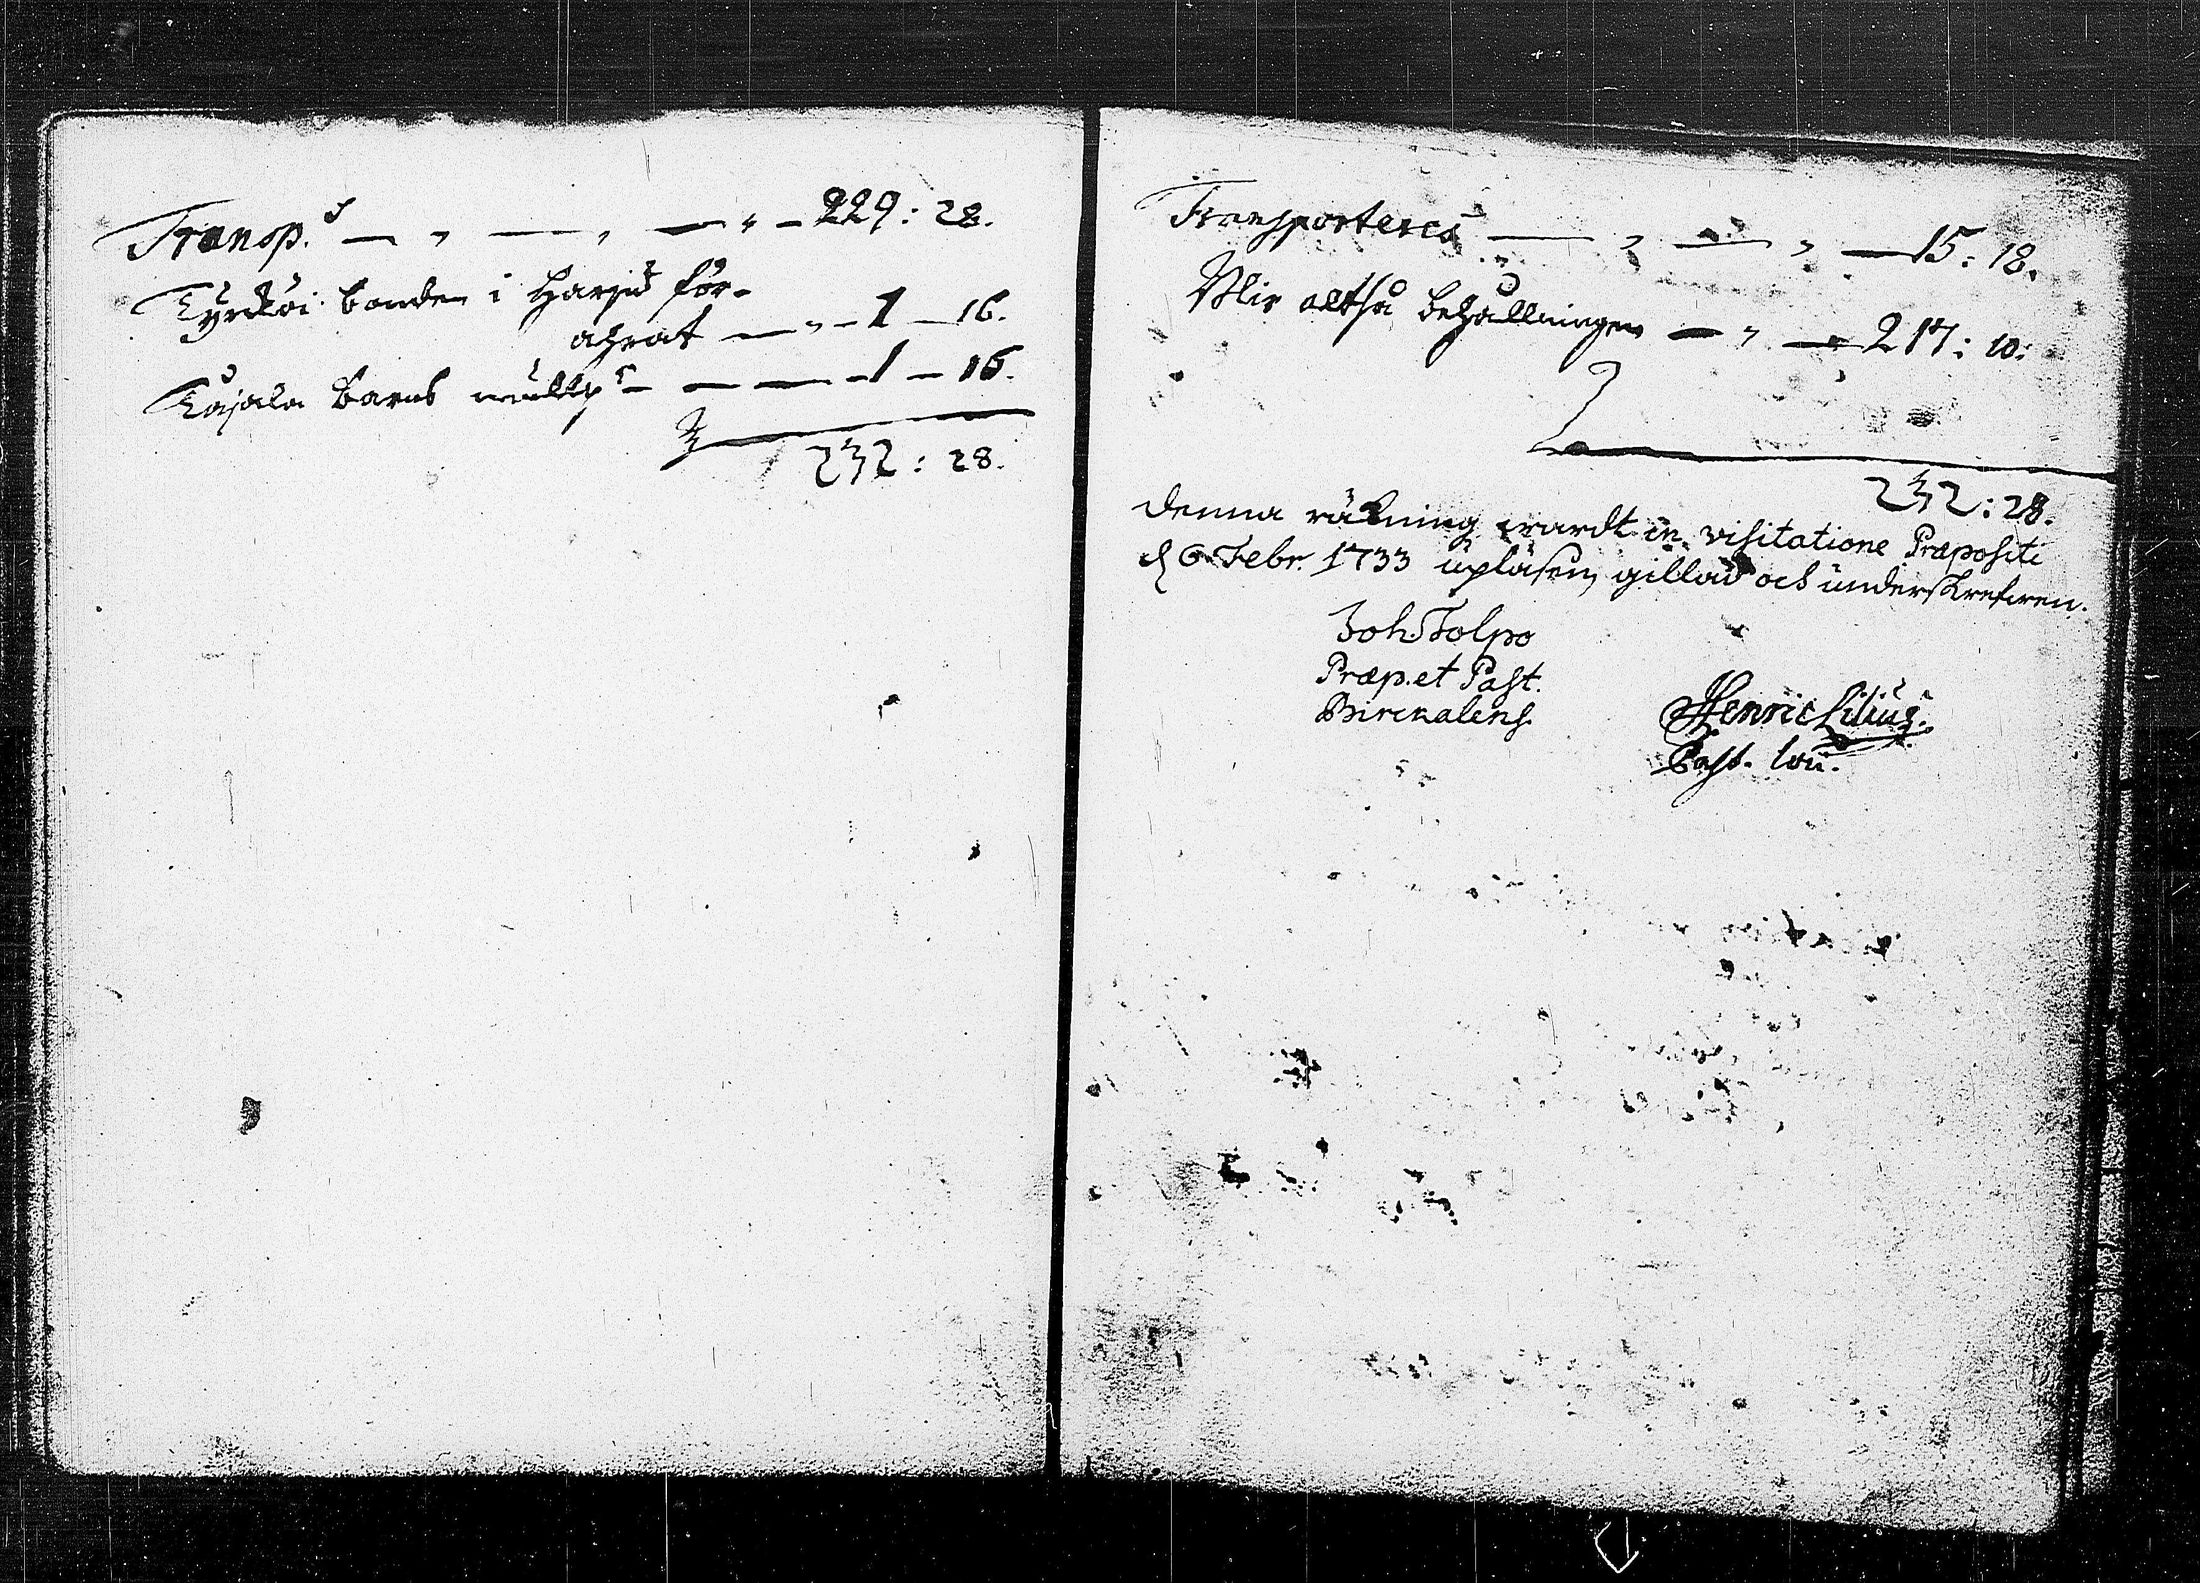 Transp.t — " — " — " — 229: 28.
Kyrckoi bonden i Harju för-
ahrat — " — 1 — 16.
Kåjala barns — — — 1 — 16.
232: 28.
Transporteres — " — " — 15: 18.
Blir altså behållningen — " — 217: 10:
232: 28.
denna räkning wardt in visitatione Præpositi
d 6 Febr. 1733 upläsen, gillad och underskrefwen.
Joh. Tolpo
Præp. et Past.
Birckalens.
Henric Lilius.
Past. loci.